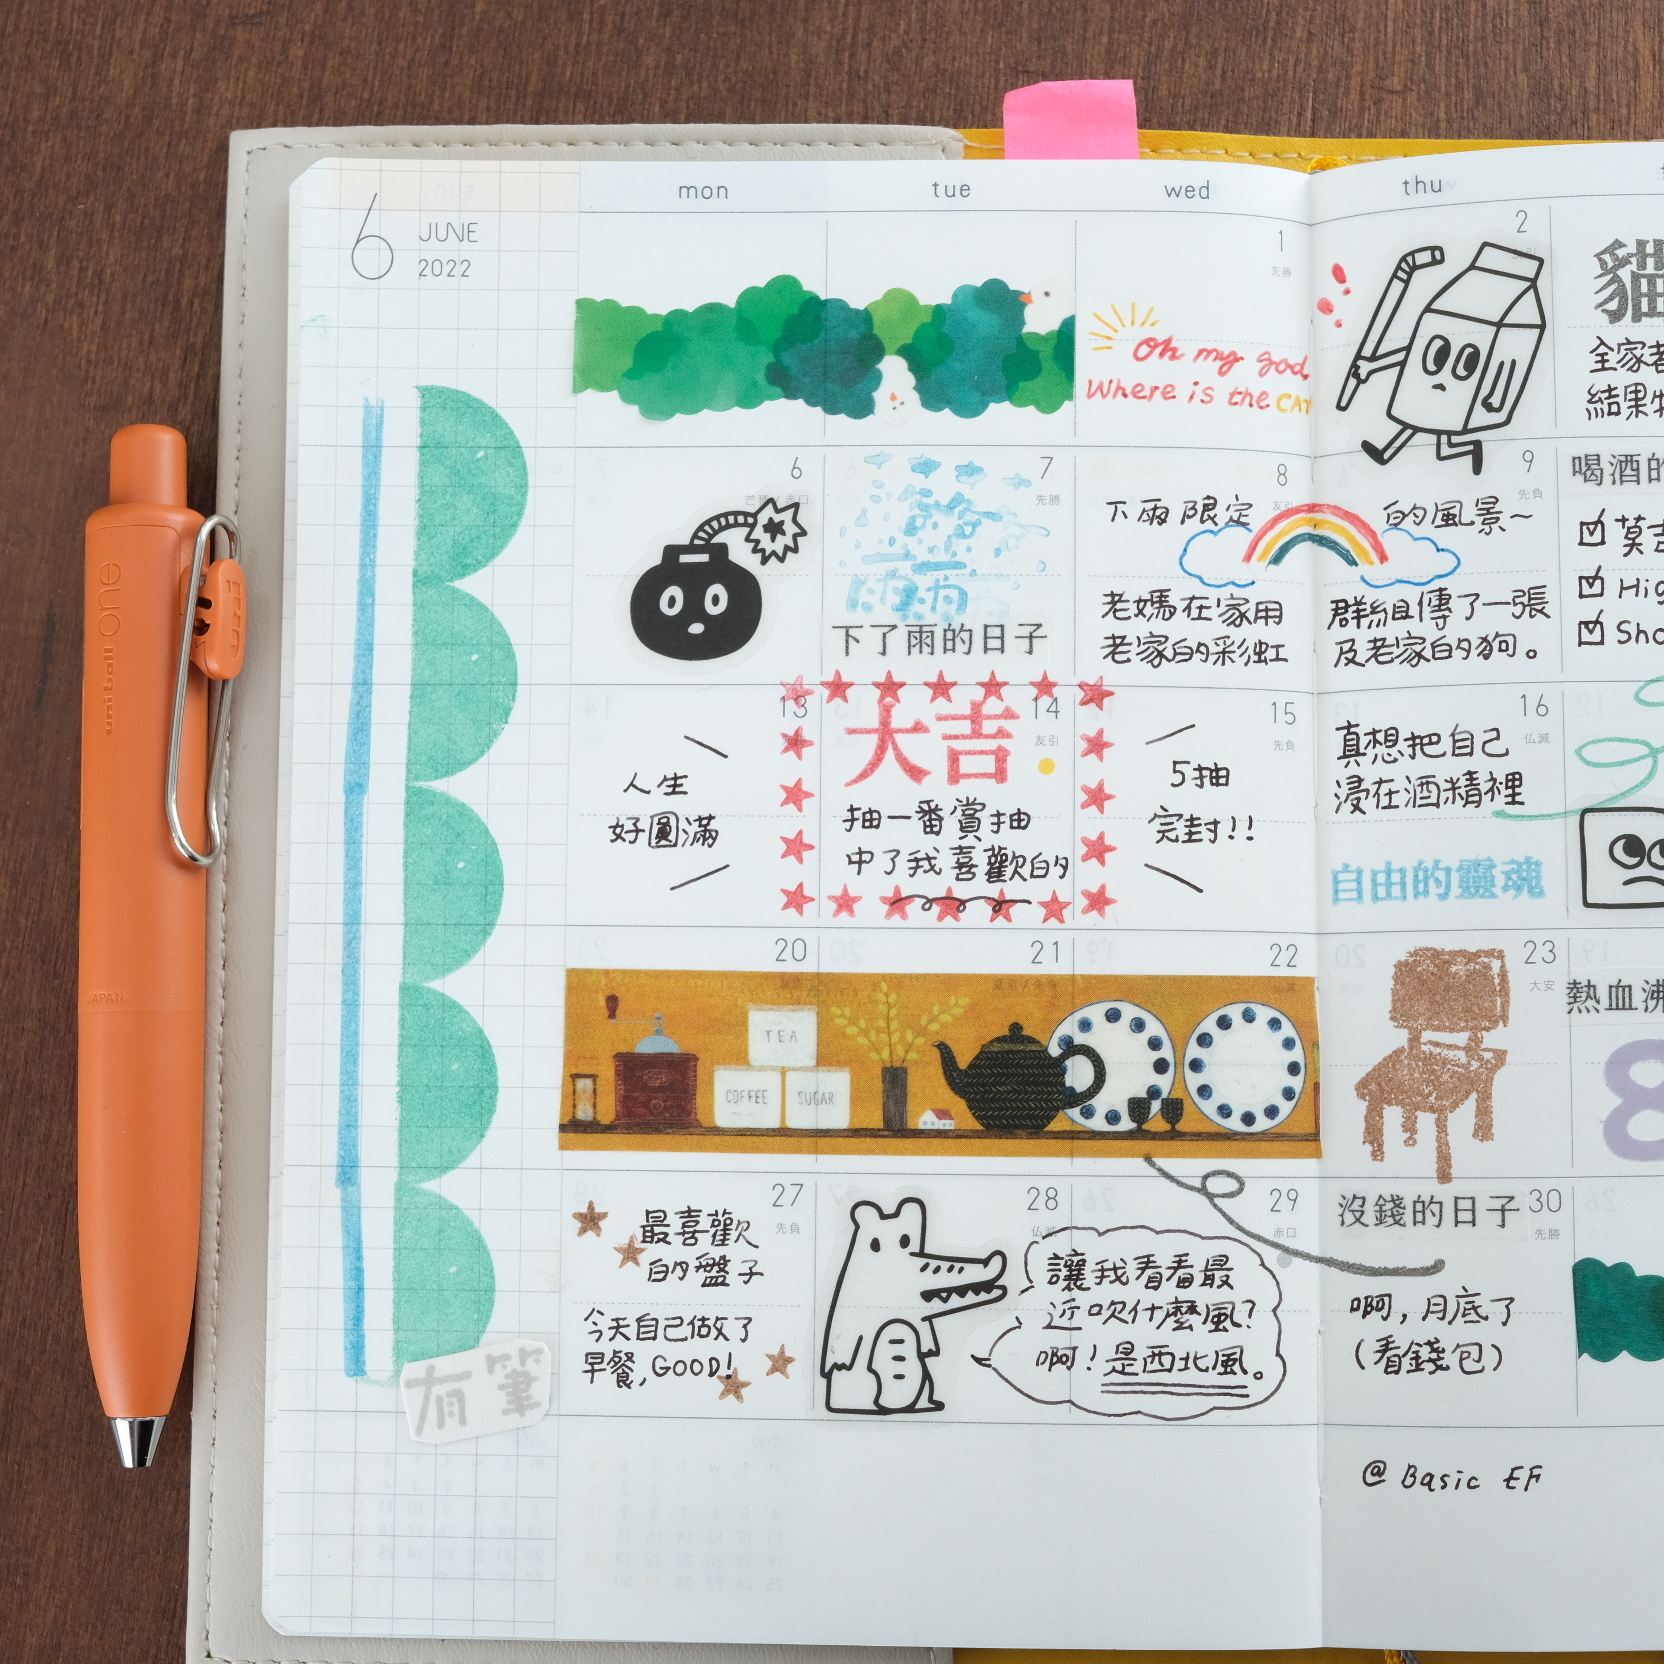 mon tue wed thu
6 JUNE
2022
1
先勝
Oh my god,
Where is the CAT
2
貓
全家
結果
6
7
先勝
下了雨的日子
8
下雨限定
老媽在家用
老家的彩虹
9
先負
的風景～
群組傳了一張
及老家的狗。
喝酒的
莫吉
Hig
Sho
13
人生
好圓滿
14
友引
大吉
抽一番賞抽
中了我喜歡的
15
先負
5抽
完封!!
16
仏滅
真想把自己
浸在酒精裡
自由的靈魂
20
21
22
TEA
COFFEE
SUGAR
23
大安
熱血沸
8
27
先負
最喜歡
的盤子
今天自己做了
早餐,GOOD!
28
仏滅
29
赤口
讓我看看最
近吹什麼風?
啊!是西北風。
沒錢的日子
30
先勝
啊,月底了
(看錢包)
有筆
@ Basic EF
uniball one
JAPAN